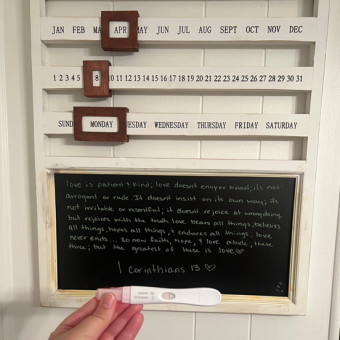 JAN FEB MA APR MAY JUN JUL AUG SEPT OCT NOV DEC
1 2 3 4 5 8 10 11 12 13 14 15 16 17 18 19 20 21 22 23 24 25 26 27 28 29 30 31
SUND MONDAY UESDAY WEDNESDAY THURSDAY FRIDAY SATURDAY
love is patient & kind; love doesn't envy or boast; it's not
arrogant or rude. It doesn't insist on its own way; it's
not irritable or resentful; it doesn't rejoice at wrongdoing
but rejoices with the truth. love bears all things, believes
all things, hopes all things, & endures all things. love
never ends... So now faith, hope, & love abide, these
three; but the greatest of these is love♡
1 Corinthians 13 ♡